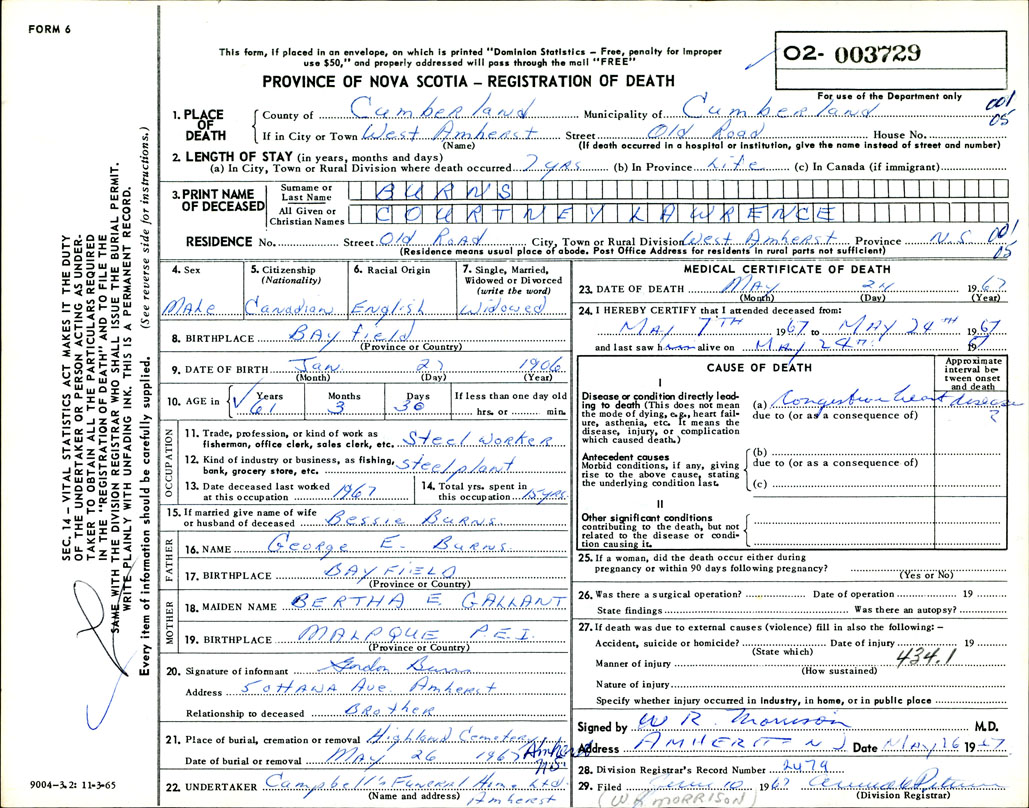 FORM 6
This form, if placed in an envelope, on which is printed "Dominion Statistics — Free, penalty for improper
use $50," and properly addressed will pass through the mail "FREE"
O2- 003729
PROVINCE OF NOVA SCOTIA — REGISTRATION OF DEATH
For use of the Department only
001
05
1. PLACE OF DEATH County of Cumberland Municipality of Cumberland
If in City or Town West Amherst Street Old Road House No.
(Name) (If death occurred in a hospital or institution, give the name instead of street and number)
2. LENGTH OF STAY (in years, months and days)
(a) In City, Town or Rural Division where death occurred 7 yrs (b) In Province Life (c) In Canada (if immigrant)
3. PRINT NAME OF DECEASED Surname or Last Name BURNS
All Given or Christian Names COURTNEY LAWRENCE
RESIDENCE No. Street Old Road City, Town or Rural Division West Amherst Province N.S. 001
05
(Residence means usual place of abode. Post Office Address for residents in rural parts not sufficient)
4. Sex
Male
5. Citizenship
(Nationality)
Canadian
6. Racial Origin
English
7. Single, Married,
Widowed or Divorced
(write the word)
Widowed
8. BIRTHPLACE Bayfield
(Province or Country)
9. DATE OF BIRTH Jan. 1906
(Month) (Day) (Year)
10. AGE in Years Months Days If less than one day old
61 3 30 hrs. or min.
OCCUPATION
11. Trade, profession, or kind of work as
fisherman, office clerk, sales clerk, etc. Steel worker
12. Kind of industry or business, as fishing,
bank, grocery store, etc. Steel plant
13. Date deceased last worked
at this occupation 1967
14. Total yrs. spent in
this occupation 15 yrs
15. If married give name of wife
or husband of deceased Bessie Burns
FATHER
16. NAME George E. Burns
17. BIRTHPLACE BAYFIELD
(Province or Country)
MOTHER
18. MAIDEN NAME BERTHA E. GALLANT
19. BIRTHPLACE MALPQUE P.E.I.
(Province or Country)
20. Signature of informant Gordon Burns
Address 5 Ottawa Ave. Amherst
Relationship to deceased Brother
21. Place of burial, cremation or removal Highland Cemetery Amherst NS
Date of burial or removal May 26 1967
22. UNDERTAKER Campbell's Funeral Home Ltd.
(Name and address) Amherst
MEDICAL CERTIFICATE OF DEATH
23. DATE OF DEATH May 24 1967
(Month) (Day) (Year)
24. I HEREBY CERTIFY that I attended deceased from:
May 7TH 1967 to May 24TH 1967
and last saw h alive on May 24TH 1967
CAUSE OF DEATH
Approximate
interval be-
tween onset
and death
I
Disease or condition directly lead-
ing to death (This does not mean
the mode of dying, e.g., heart fail-
ure, asthenia, etc. It means the
disease, injury, or complication
which caused death.)
(a) Congestive heart disease
due to (or as a consequence of) ?
Antecedent causes
Morbid conditions, if any, giving
rise to the above cause, stating
the underlying condition last.
(b)
due to (or as a consequence of)
(c)
II
Other significant conditions
contributing to the death, but not
related to the disease or condi-
tion causing it.
25. If a woman, did the death occur either during
pregnancy or within 90 days following pregnancy?
(Yes or No)
26. Was there a surgical operation? Date of operation 19
State findings Was there an autopsy?
27. If death was due to external causes (violence) fill in also the following: —
Accident, suicide or homicide? Date of injury 19
(State which) 434.1
Manner of injury
(How sustained)
Nature of injury
Specify whether injury occurred in industry, in home, or in public place
Signed by W R. Morrison M.D.
Address AMHERST Date May 26 1967
28. Division Registrar's Record Number 2479
29. Filed 10 1967
(Division Registrar)
(W R MORRISON)
SEC. 14 – VITAL STATISTICS ACT MAKES IT THE DUTY
OF THE UNDERTAKER OR PERSON ACTING AS UNDER-
TAKER TO OBTAIN ALL THE PARTICULARS REQUIRED
IN THE "REGISTRATION OF DEATH" AND TO FILE THE
SAME WITH THE DIVISION REGISTRAR WHO SHALL ISSUE THE BURIAL PERMIT.
WRITE PLAINLY WITH UNFADING INK. THIS IS A PERMANENT RECORD.
Every item of information should be carefully supplied. (See reverse side for instructions.)
9004–3.2: 11-3-65